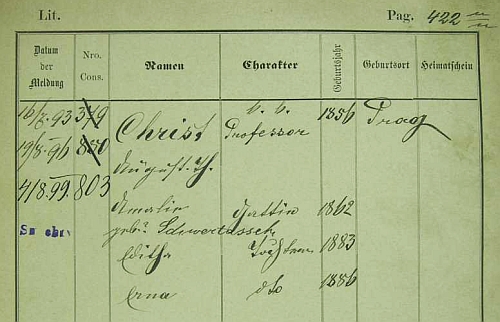 Lit. Pag. 422
Datum der Meldung Nro. Cons. Namen Charakter Geburtsjahr Geburtsort Heimatschein
16/8.93 379 Christ k. k. Professor 1856 Prag
19/8.96 880 August
4/8.99. 803
Amalie Gattin 1862
geb.
Editha 1883
Erna dto 1886